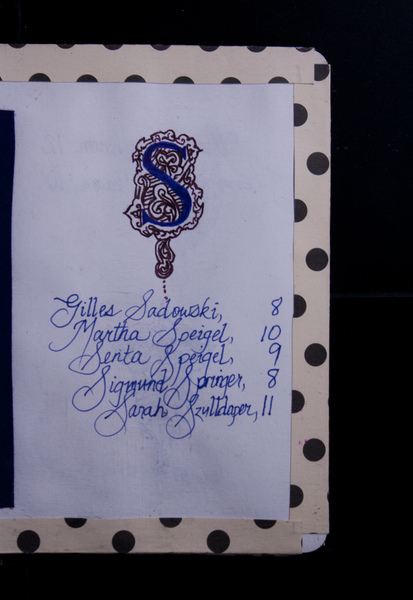 S
Gilles Sadowski, 8
Martha Speigel, 10
Senta Speigel, 9
Sigmund Springer, 8
Sarah Szylldager, 11